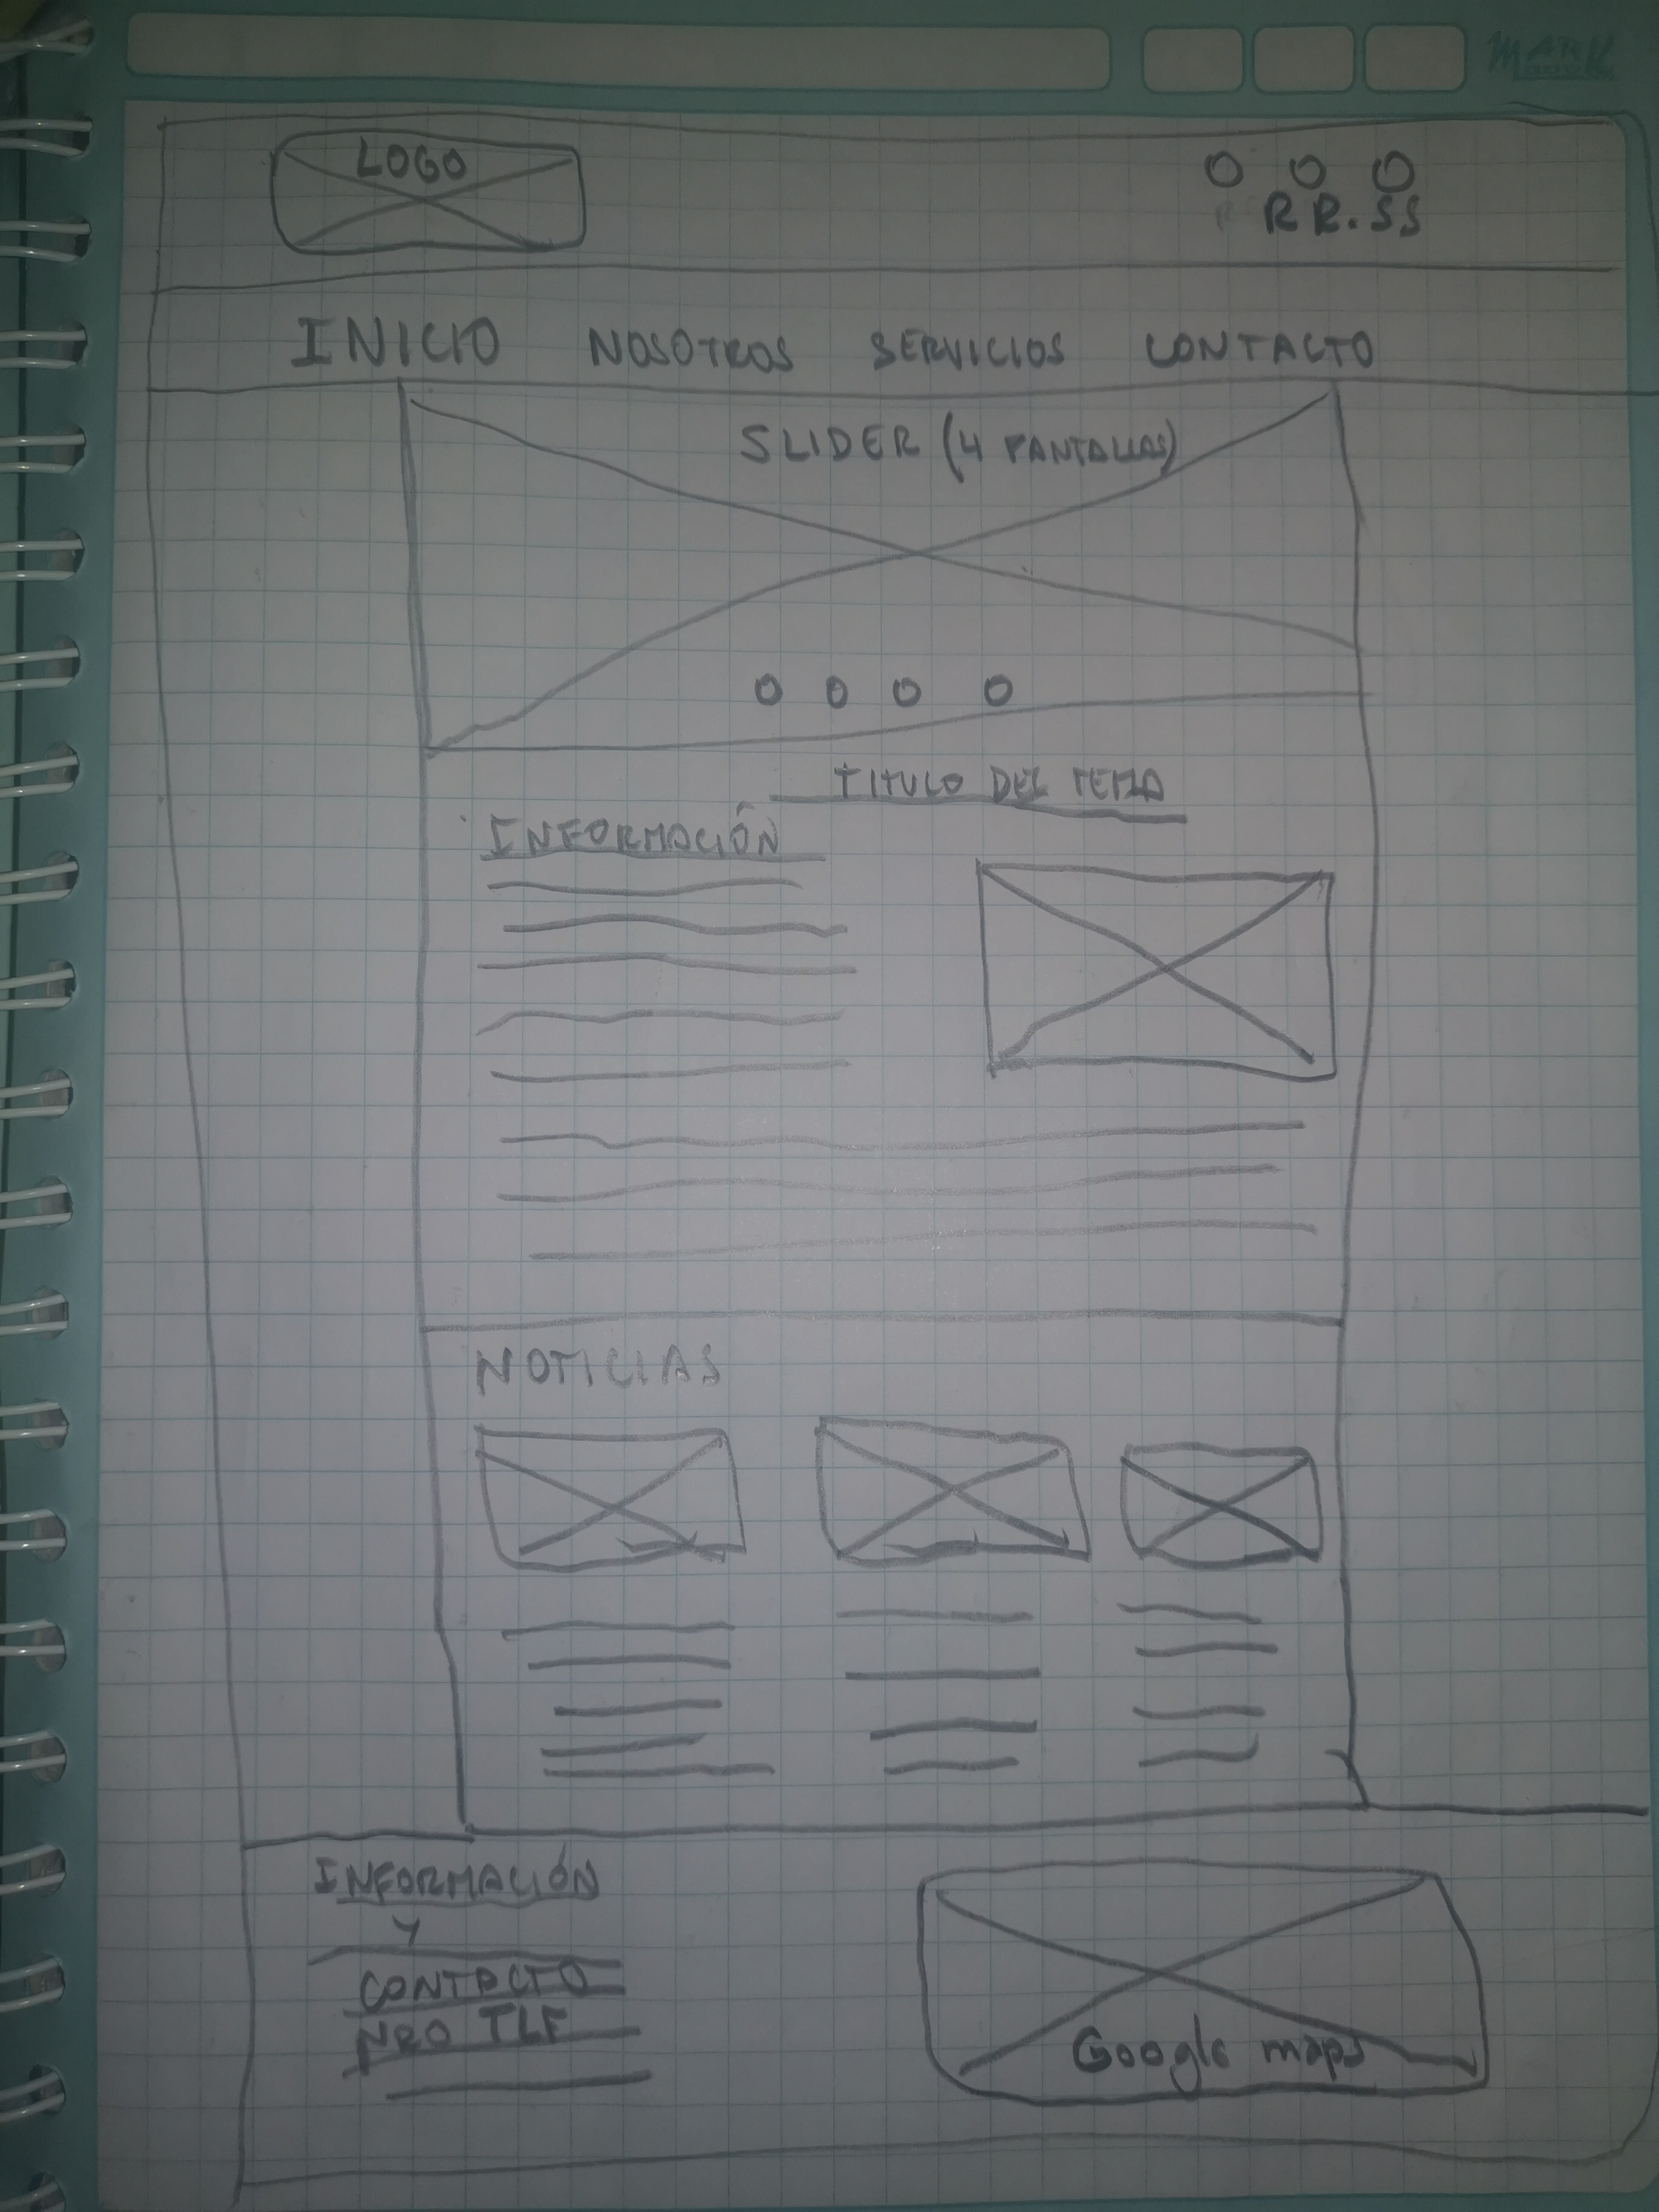 LOGO
RR.SS
INICIO NOSOTROS SERVICIOS CONTACTO
SLIDER (4 PANTALLAS)
TITULO DEL TEMA
INFORMACIÓN
NOTICIAS
INFORMACIÓN
Y
CONTACTO
NRO TLF
Google maps